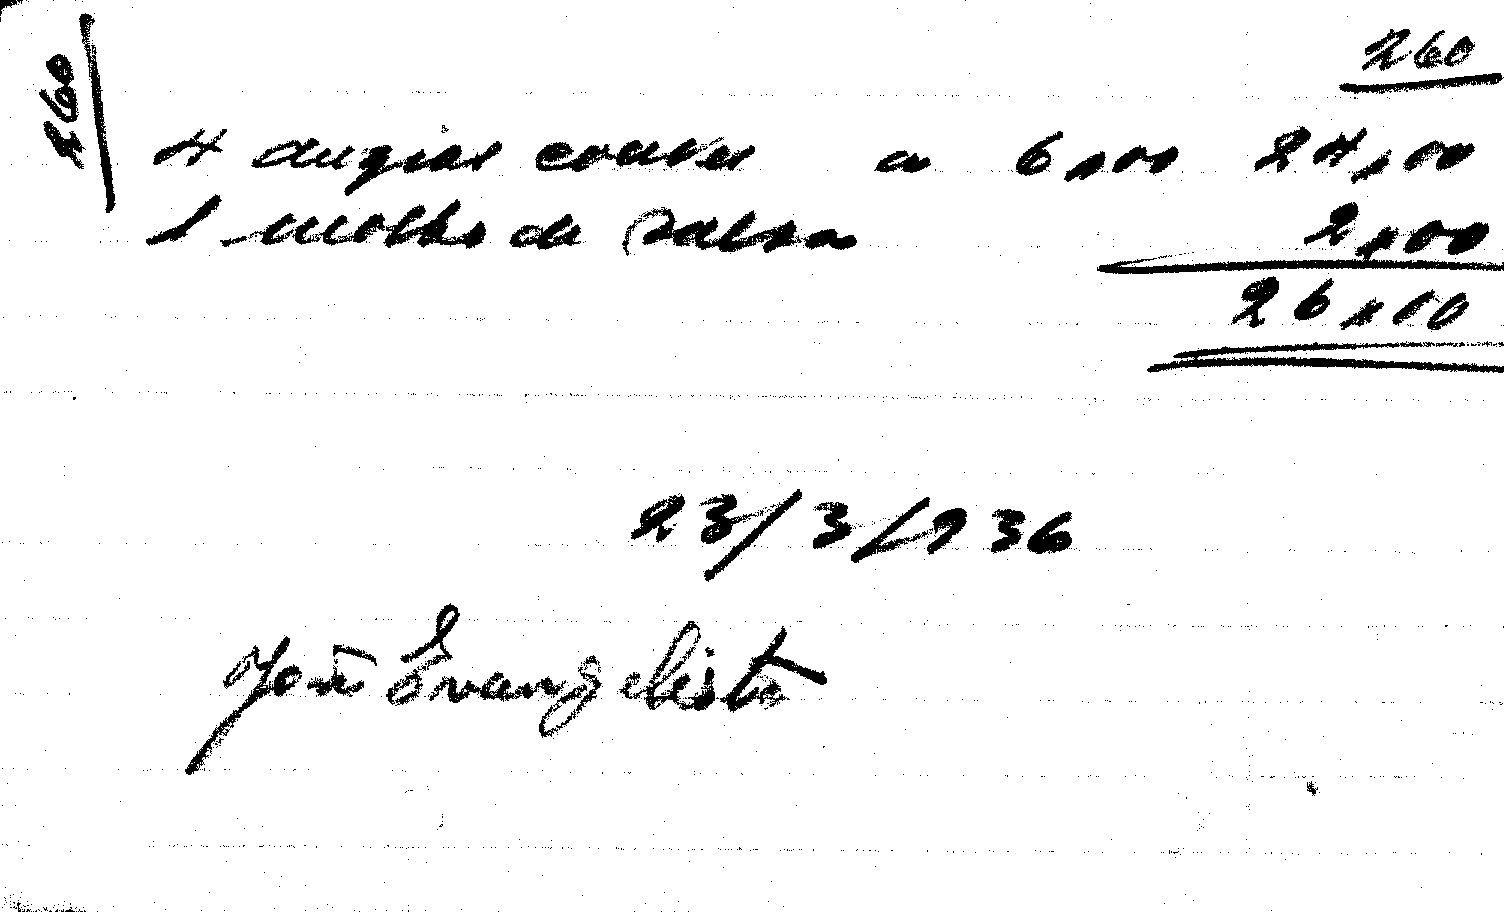 260
260
4 duzias couves a 6,00 24,00
1 molho de salsa 2,00
26,00
23/3/936
José Evangelista